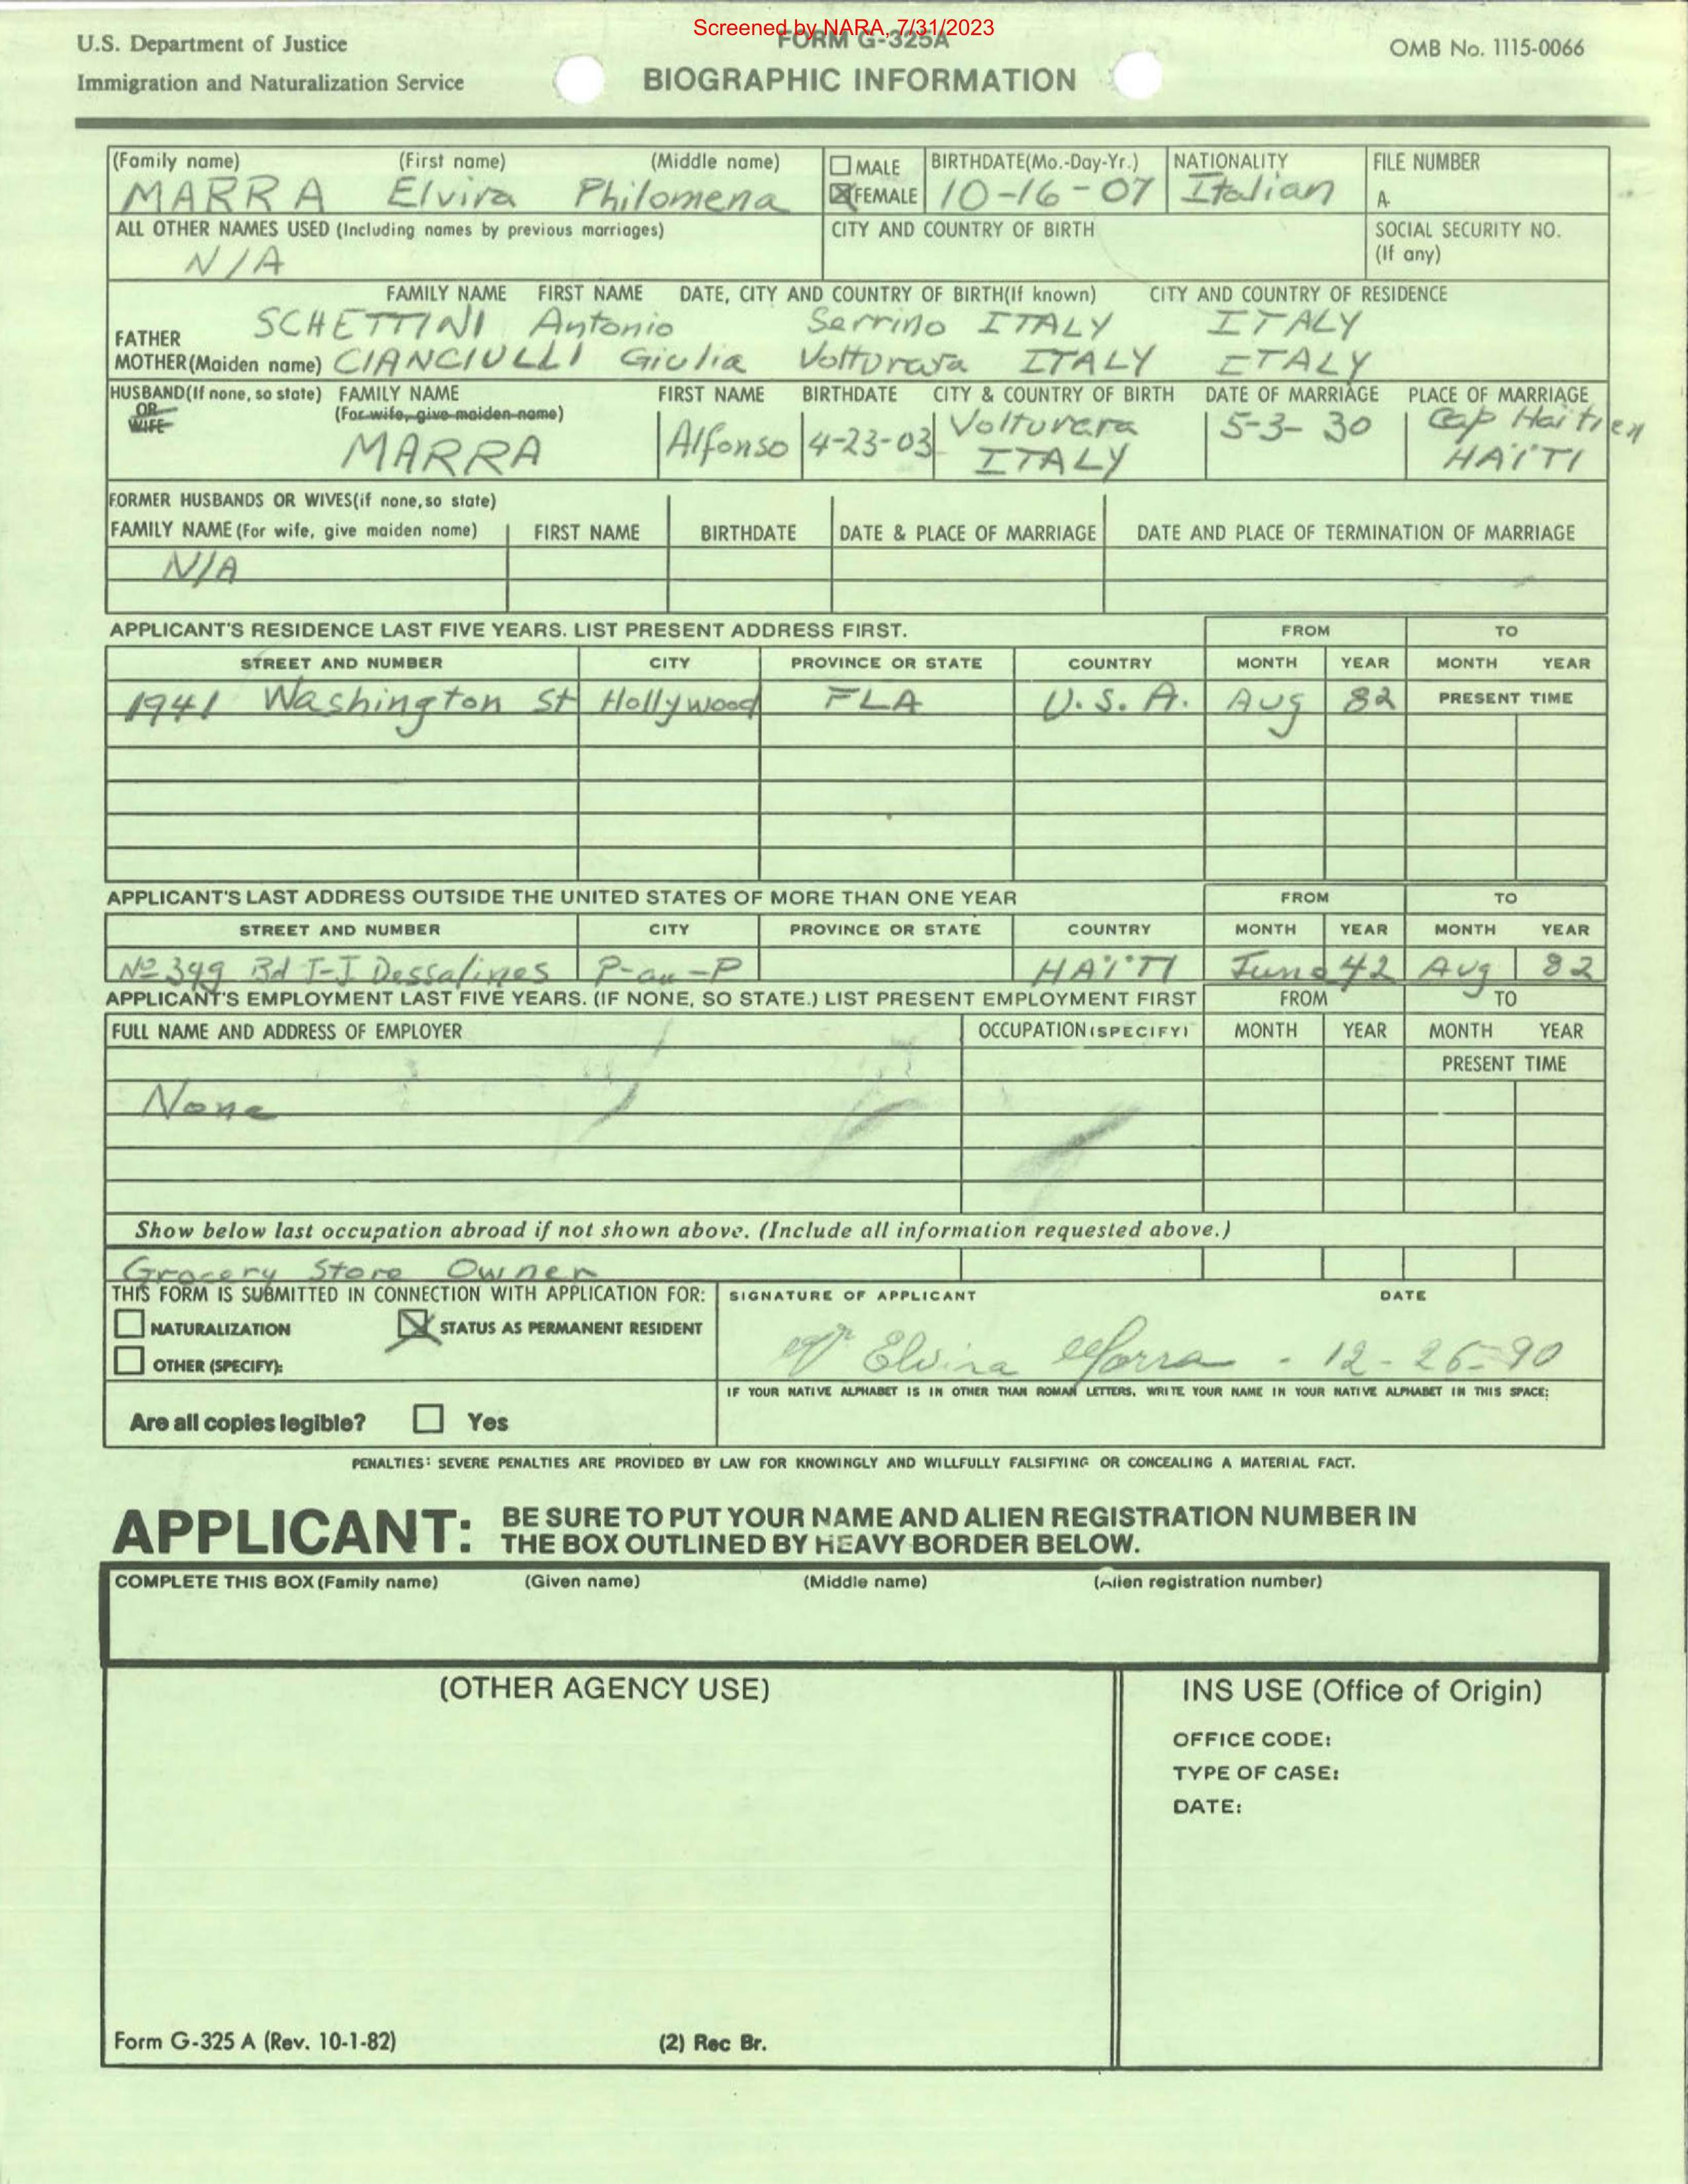 Screened by NARA, 7/31/2023
U.S. Department of Justice FORM G-325A OMB No. 1115-0066
Immigration and Naturalization Service BIOGRAPHIC INFORMATION
(Family name) (First name) (Middle name) MALE BIRTHDATE(Mo.-Day-Yr.) NATIONALITY FILE NUMBER
MARRA Elvira Philomena FEMALE 10-16-07 Italian A-
ALL OTHER NAMES USED (Including names by previous marriages) CITY AND COUNTRY OF BIRTH SOCIAL SECURITY NO.
N/A (If any)
FAMILY NAME FIRST NAME DATE, CITY AND COUNTRY OF BIRTH(If known) CITY AND COUNTRY OF RESIDENCE
FATHER SCHETTINI Antonio Serrino ITALY ITALY
MOTHER(Maiden name) CIANCIULLI Giulia Volturara ITALY ITALY
HUSBAND(If none, so state) FAMILY NAME FIRST NAME BIRTHDATE CITY & COUNTRY OF BIRTH DATE OF MARRIAGE PLACE OF MARRIAGE
OR (For wife, give maiden name) Volturara 5-3-30 Cap Haitien
WIFE MARRA Alfonso 4-23-03 ITALY HAÏTI
FORMER HUSBANDS OR WIVES(if none, so state)
FAMILY NAME (For wife, give maiden name) FIRST NAME BIRTHDATE DATE & PLACE OF MARRIAGE DATE AND PLACE OF TERMINATION OF MARRIAGE
N/A
APPLICANT'S RESIDENCE LAST FIVE YEARS. LIST PRESENT ADDRESS FIRST. FROM TO
STREET AND NUMBER CITY PROVINCE OR STATE COUNTRY MONTH YEAR MONTH YEAR
1941 Washington St Hollywood FLA U.S.A. Aug 82 PRESENT TIME
APPLICANT'S LAST ADDRESS OUTSIDE THE UNITED STATES OF MORE THAN ONE YEAR FROM TO
STREET AND NUMBER CITY PROVINCE OR STATE COUNTRY MONTH YEAR MONTH YEAR
Nº 349 Bd J-J Dessalines P-au-P HAÏTI June 42 Aug 82
APPLICANT'S EMPLOYMENT LAST FIVE YEARS. (IF NONE, SO STATE.) LIST PRESENT EMPLOYMENT FIRST FROM TO
FULL NAME AND ADDRESS OF EMPLOYER OCCUPATION (SPECIFY) MONTH YEAR MONTH YEAR
PRESENT TIME
None
Show below last occupation abroad if not shown above. (Include all information requested above.)
Grocery Store Owner
THIS FORM IS SUBMITTED IN CONNECTION WITH APPLICATION FOR: SIGNATURE OF APPLICANT DATE
NATURALIZATION STATUS AS PERMANENT RESIDENT
OTHER (SPECIFY): Elvira Marra - 12-26-90
IF YOUR NATIVE ALPHABET IS IN OTHER THAN ROMAN LETTERS, WRITE YOUR NAME IN YOUR NATIVE ALPHABET IN THIS SPACE:
Are all copies legible? Yes
PENALTIES: SEVERE PENALTIES ARE PROVIDED BY LAW FOR KNOWINGLY AND WILLFULLY FALSIFYING OR CONCEALING A MATERIAL FACT.
APPLICANT: BE SURE TO PUT YOUR NAME AND ALIEN REGISTRATION NUMBER IN
THE BOX OUTLINED BY HEAVY BORDER BELOW.
COMPLETE THIS BOX (Family name) (Given name) (Middle name) (Alien registration number)
(OTHER AGENCY USE) INS USE (Office of Origin)
OFFICE CODE:
TYPE OF CASE:
DATE:
Form G-325 A (Rev. 10-1-82) (2) Rec Br.